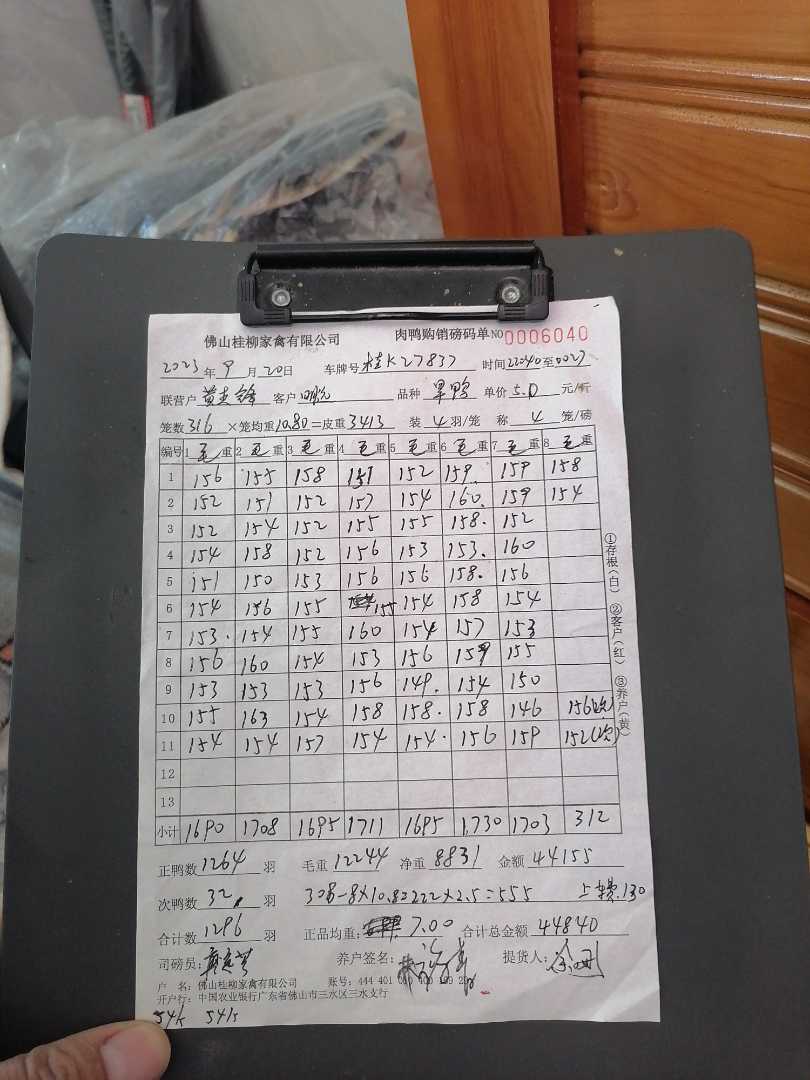 佛山桂柳家禽有限公司 肉鸭购销磅码单 NO 0006040
2023年9月20日 车牌号 桂K27837 时间 22040至0027
联营户 客户 品种 单价 5.0 元/斤
笼数 316 ×笼均重 10.80 =皮重 3413 装 4 羽/笼 称 4 笼/磅
编号 1毛重 2毛重 3毛重 4毛重 5毛重 6毛重 7毛重 8毛重
1 156 155 158 151 152 159. 159 158
2 152 151 152 157 154 160. 159 154
3 152 154 152 155 155 158. 152
4 154 158 152 156 153 153. 160
5 151 150 153 156 156 158. 156
6 154 156 155 155 154 158 154
7 153. 154 155 160 154 157 153
8 156 160 154 153 156 159 155
9 153 153 153 156 149. 154 150
10 155 163 154 158 158. 158 146 156(次)
11 154 154 157 154 154. 156 159 152(次)
12
13
小计 1690 1708 1695 1711 1695 1,730 1703 312
①存根(白) ②客户(红) ③养户(黄)
正鸭数 1264 羽 毛重 12244 净重 8831 金额 44155
次鸭数 32 羽 308-8×10.8=222×2.5=555 上车费.130
合计数 1296 羽 正品均重: 7.00 合计总金额 44840
司磅员: 养户签名: 提货人:
户 名: 佛山桂柳家禽有限公司 账号: 444 401
开户行: 中国农业银行广东省佛山市三水区三水支行